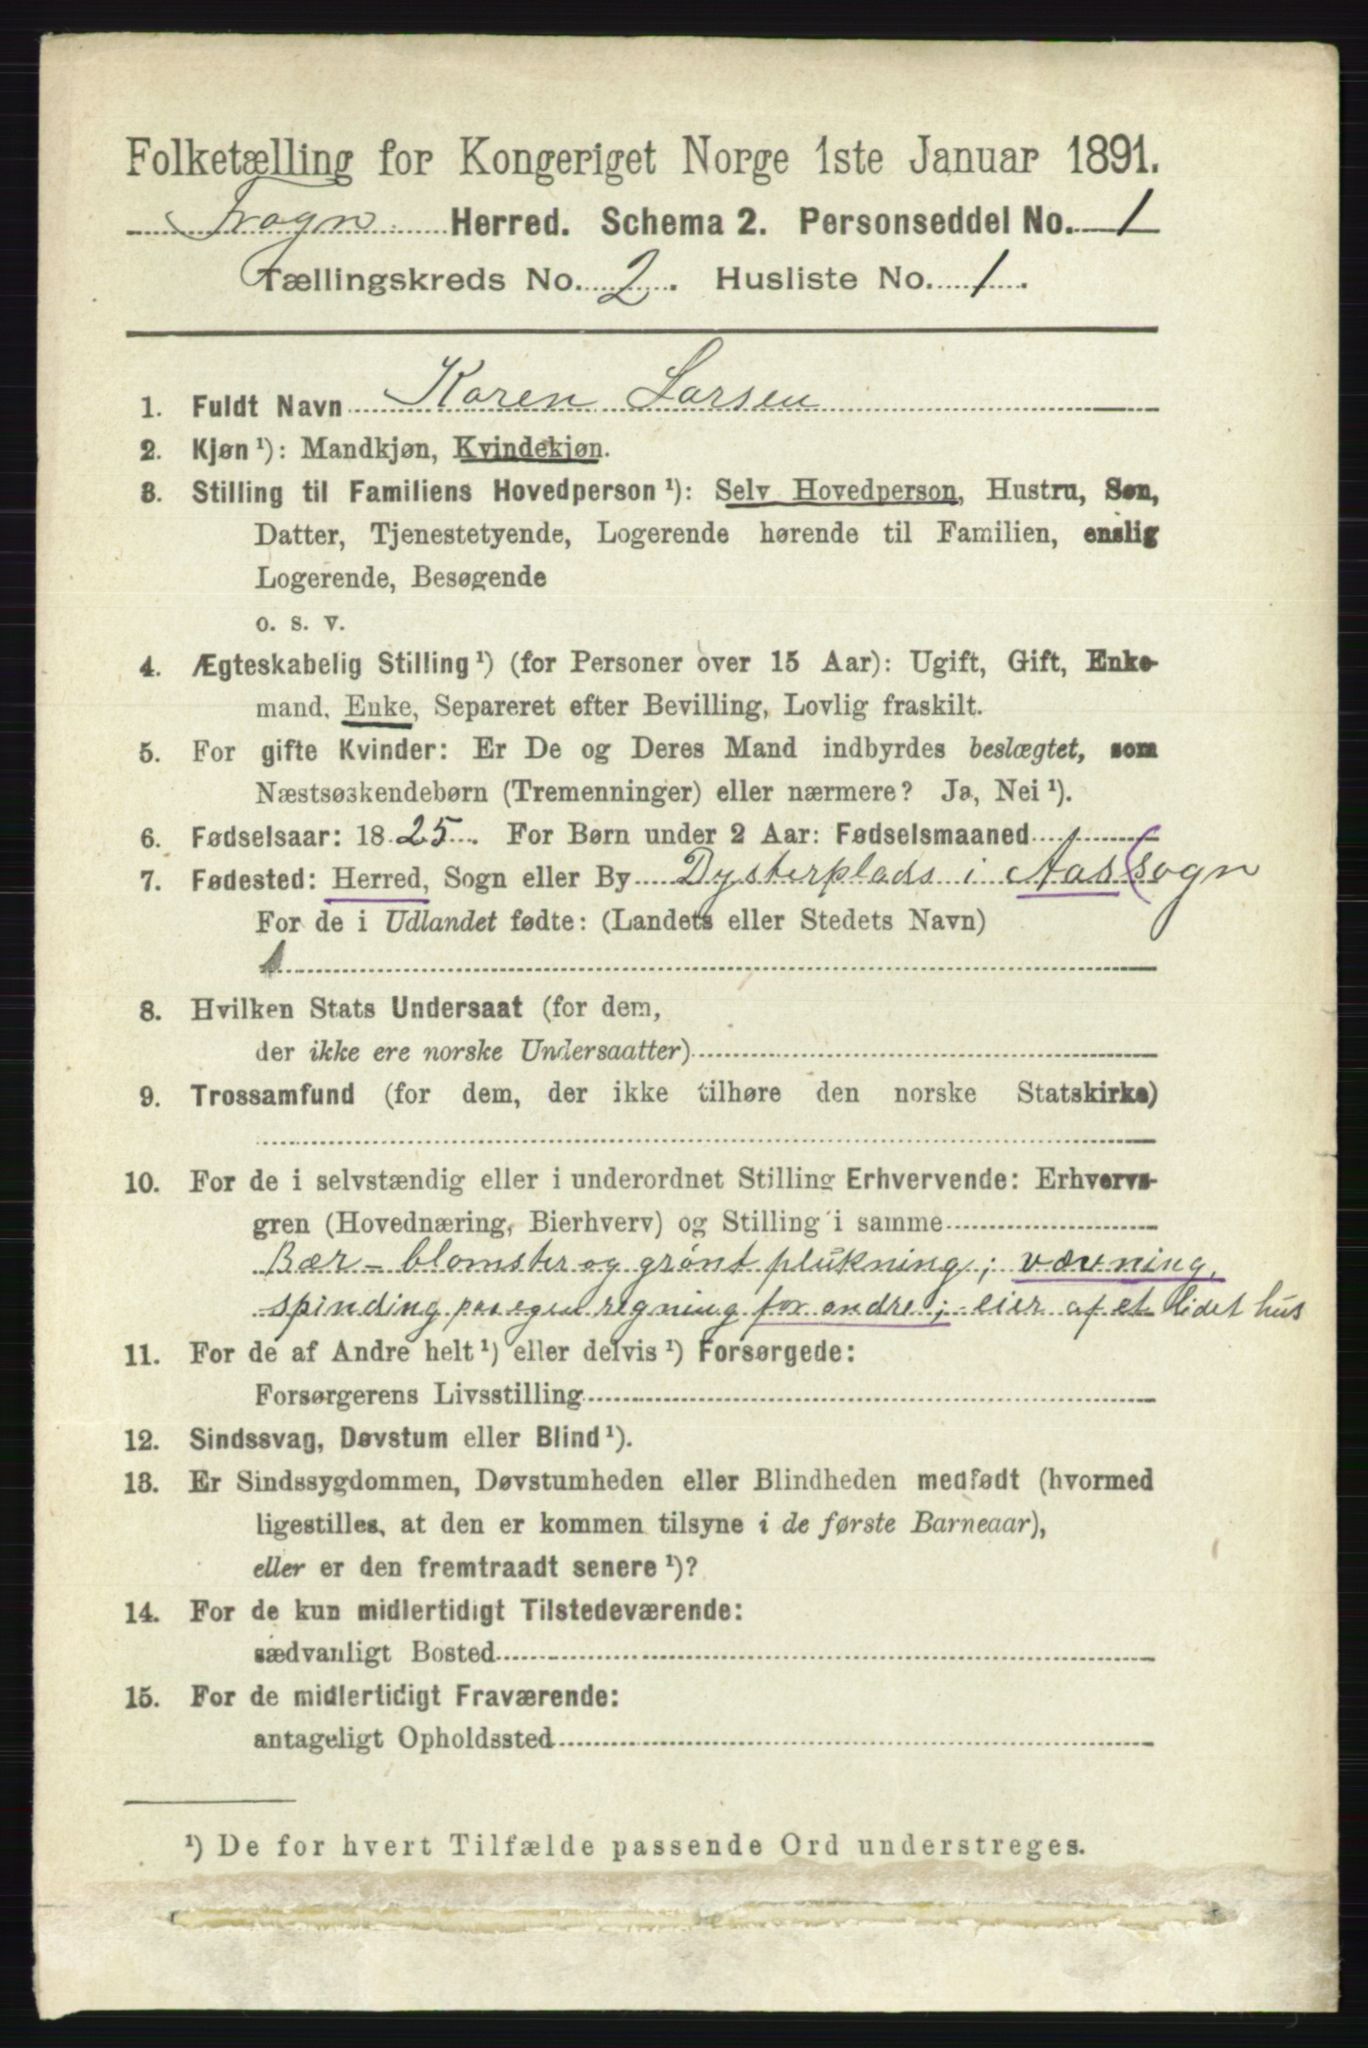 Folketælling for Kongeriget Norge 1ste Januar 1891.
Frogn Herred. Schema 2. Personseddel No. 1
Tællingskreds No. 2. Husliste No. 1.
1. Fuldt Navn Karen Larsen
2. Kjøn¹): Mandkjøn, Kvindekjøn.
3. Stilling til Familiens Hovedperson¹): Selv Hovedperson, Hustru, Søn,
Datter, Tjenestetyende, Logerende hørende til Familien, enslig
Logerende, Besøgende
o. s. v.
4. Ægteskabelig Stilling¹) (for Personer over 15 Aar): Ugift, Gift, Enke-
mand, Enke, Separeret efter Bevilling, Lovlig fraskilt.
5. For gifte Kvinder: Er De og Deres Mand indbyrdes beslægtet, som
Næstsøskendebørn (Tremenninger) eller nærmere? Ja, Nei¹).
6. Fødselsaar: 1825. For Børn under 2 Aar: Fødselsmaaned
7. Fødested: Herred, Sogn eller By Dysterplads i Aas (sogn
For de i Udlandet fødte: (Landets eller Stedets Navn)
8. Hvilken Stats Undersaat (for dem,
der ikke ere norske Undersaatter)
9. Trossamfund (for dem, der ikke tilhøre den norske Statskirke)
10. For de i selvstændig eller i underordnet Stilling Erhvervende: Erhvervs-
gren (Hovednæring, Bierhverv) og Stilling i samme
Bær- blomster og grønt plukning; vævning,
spinding paa egen regning for andre; eier af et lidet hus
11. For de af Andre helt¹) eller delvis¹) Forsørgede:
Forsørgerens Livsstilling
12. Sindssvag, Døvstum eller Blind¹).
13. Er Sindssygdommen, Døvstumheden eller Blindheden medfødt (hvormed
ligestilles, at den er kommen tilsyne i de første Barneaar),
eller er den fremtraadt senere¹)?
14. For de kun midlertidigt Tilstedeværende:
sædvanligt Bosted
15. For de midlertidigt Fraværende:
antageligt Opholdssted
¹) De for hvert Tilfælde passende Ord understreges.